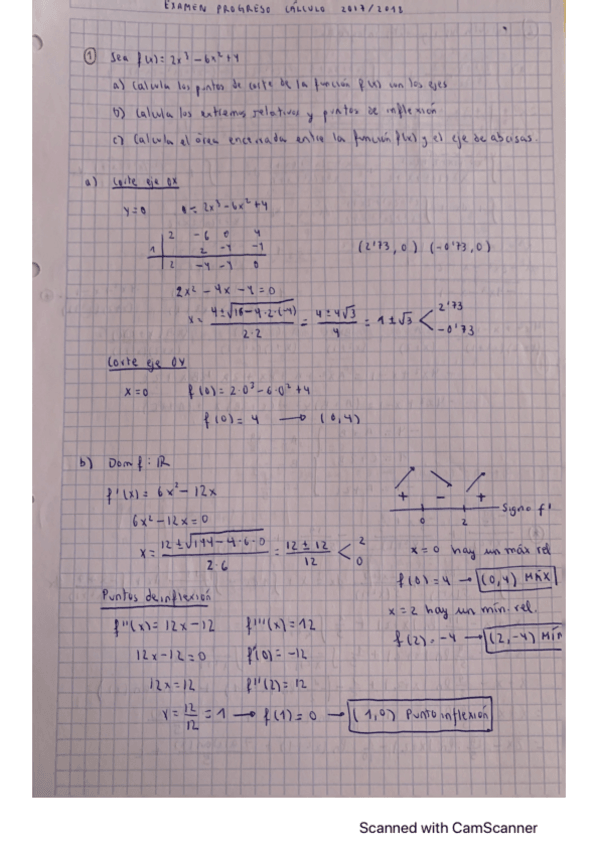 EXAMEN PROGRESO CÁLCULO 2017/2018
① Sea f(x) = 2x³ - 6x² + 4
a) Calcula los puntos de corte de la función f(x) con los ejes
b) Calcula los extremos relativos y puntos de inflexión
c) Calcula el área encerrada entre la función f(x) y el eje de abcisas.
a) Corte eje OX
y=0 0 = 2x³ - 6x² + 4
2 -6 0 4
1 2 -4 -4
2 -4 -4 0
(2'73, 0) (-0'73, 0)
2x² - 4x - 4 = 0
x = 4±√16-4·2·(-4) / 2·2 = 4±4√3 / 4 = 1±√3 < 2'73 -0'73
Corte eje OY
x=0 f(0) = 2·0³ - 6·0² + 4
f(0) = 4 → (0,4)
b) Dom f: ℝ
f'(x) = 6x² - 12x
6x² - 12x = 0
x = 12±√144-4·6·0 / 2·6 = 12±12 / 12 < 2 0
+ - + Signo f'
0 2
x=0 hay un máx rel
f(0) = 4 → (0,4) MÁX
x=2 hay un mín. rel.
f(2) = -4 → (2,-4) MÍN
Puntos de inflexión
f''(x) = 12x - 12 f'''(x) = 12
12x - 12 = 0 f''(0) = -12
12x = 12 f''(2) = 12
x = 12/12 = 1 → f(1) = 0 → (1,0) Punto inflexión
Scanned with CamScanner